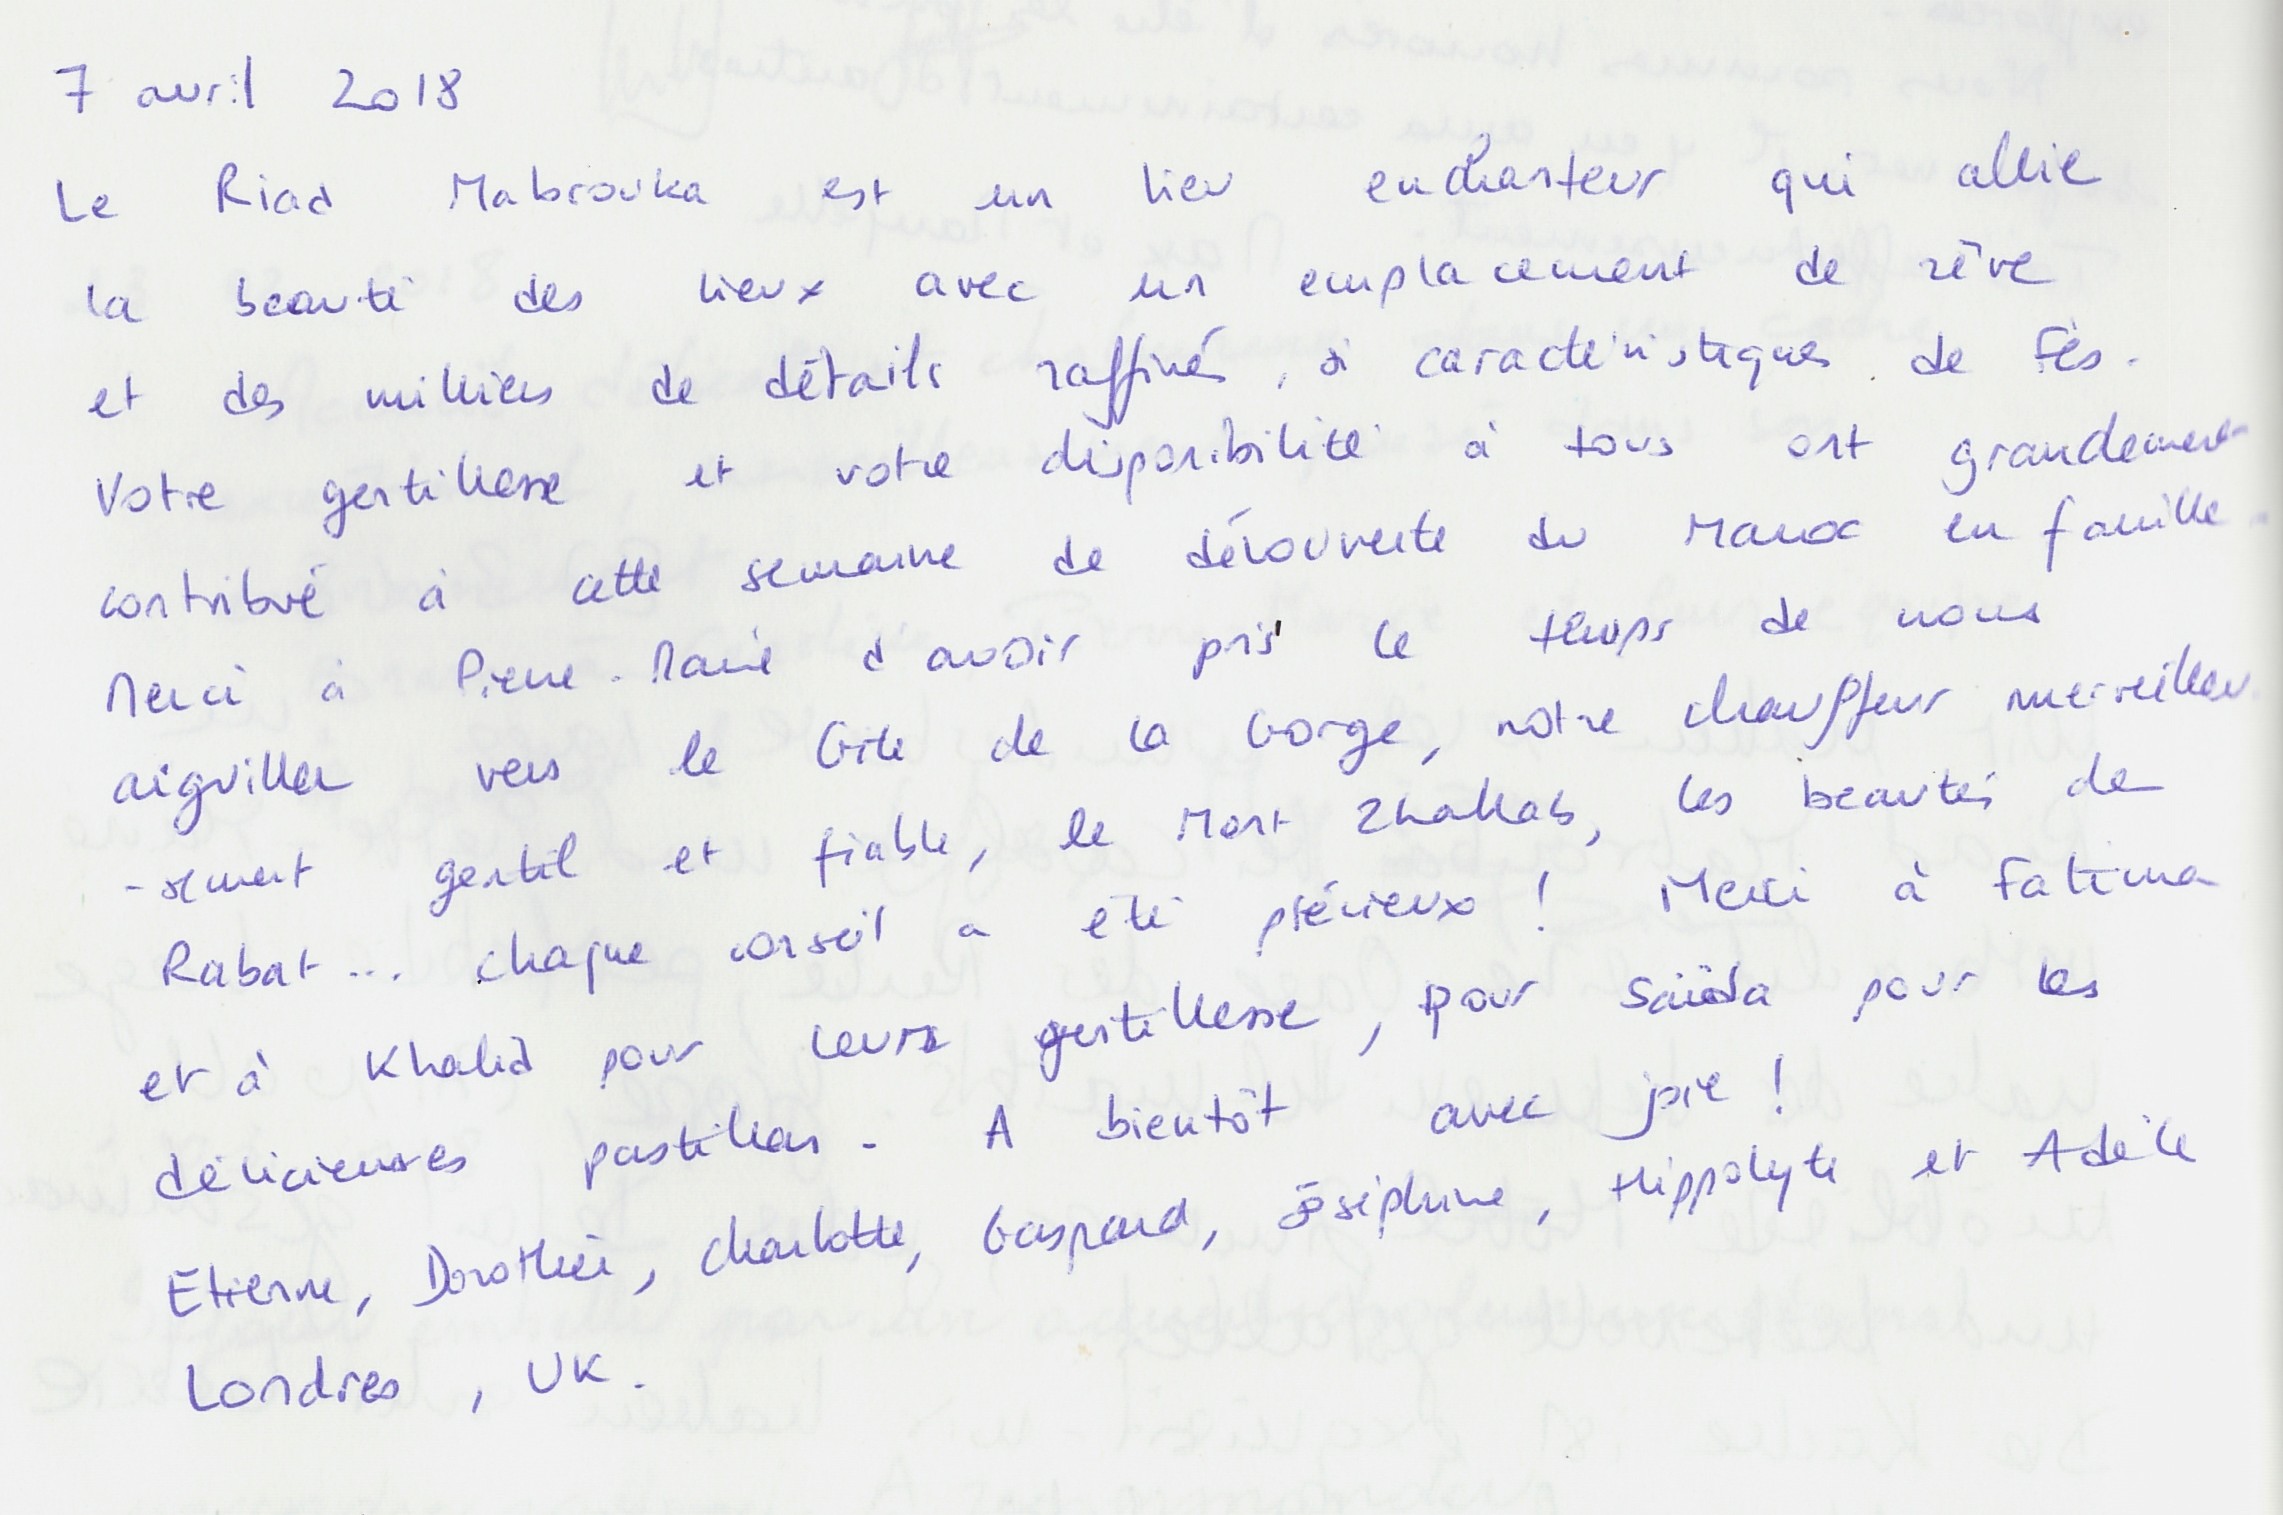 7 avril 2018
Le Riad Mabrouka est un lieu enchanteur qui allie
la beauté des lieux avec un emplacement de rêve
et des milliers de détails raffinés, si caractéristiques de Fès.
Votre gentillesse et votre disponibilité à tous ont grandement
contribué à cette semaine de découverte du Maroc en famille.
Merci à Pierre-Marie d'avoir pris le temps de nous
aiguiller vers le Gite de la Gorge, notre chauffeur merveilleu
-sement gentil et fiable, le Mont Zhallah, les beautés de
Rabat... chaque conseil a été précieux ! Merci à Fatima
et à Khalid pour leurs gentillesse, pour Saïda pour les
délicieuses pastillas. A bientôt avec joie !
Etienne, Dorothée, Charlotte, Gaspard, Joséphine, Hippolyte et Adèle
Londres, UK.